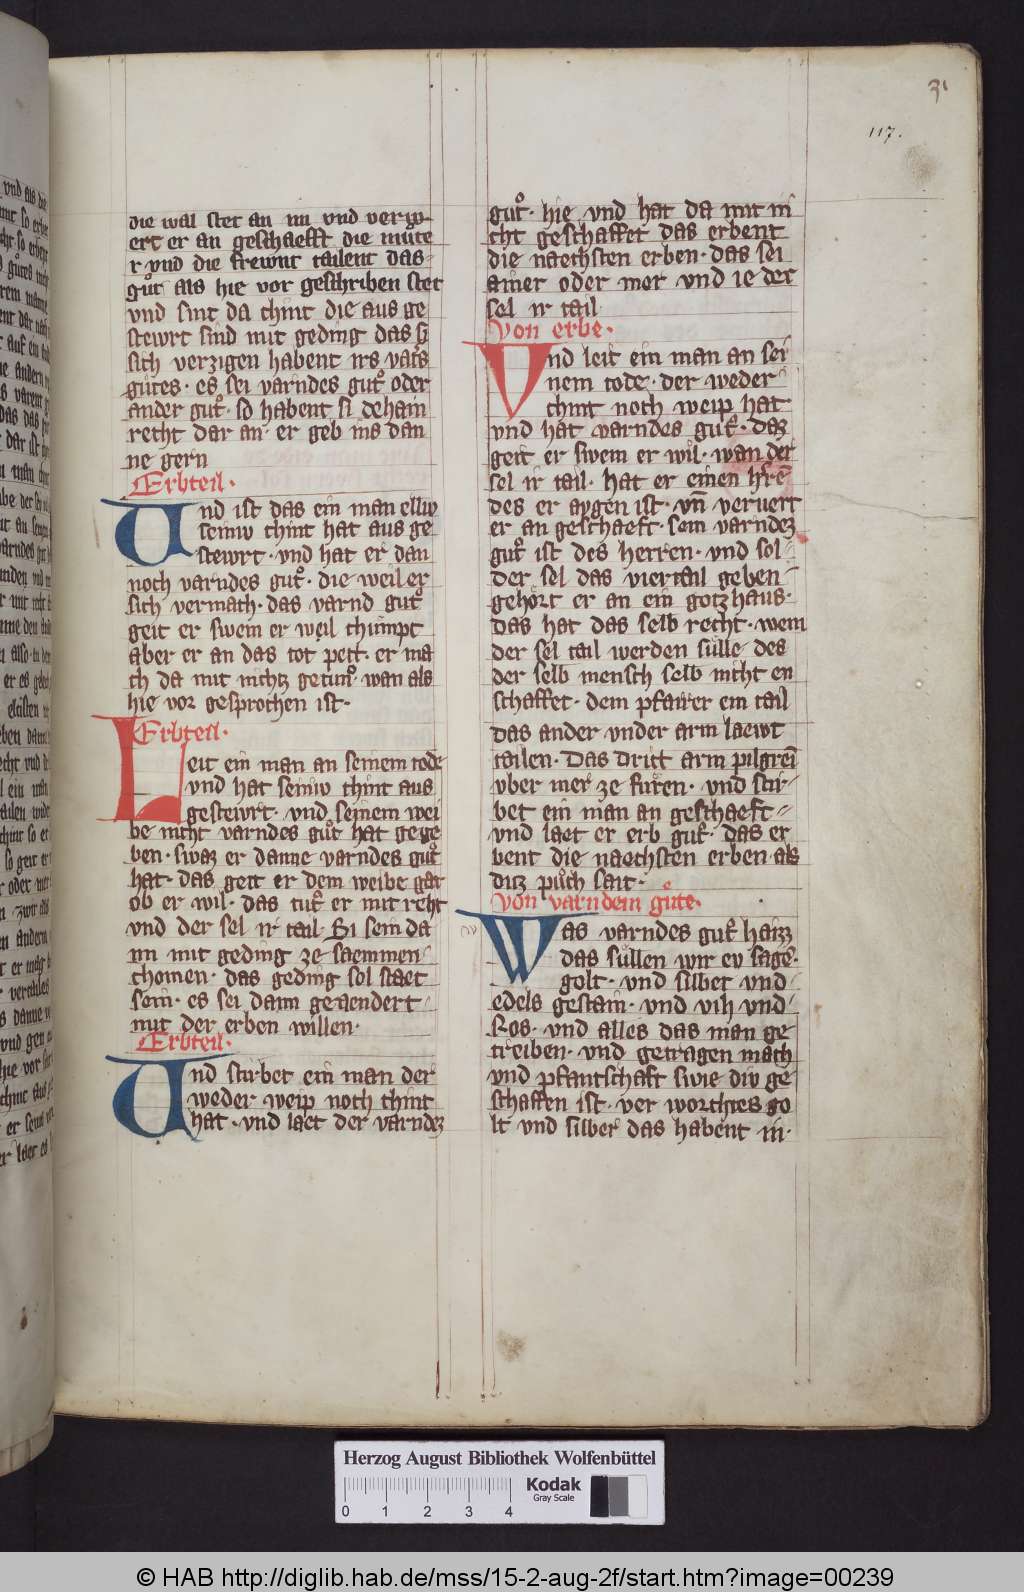 31
117.
die wal stet an im vnd verin
ert er an geschaefft die mute
r vnd die frewnt tailent das
guͦt als hie vor geschriben stet
vnd sint da chint die aus ge
stewrt sind mit geding das si
sich verzigen habent irs vats
guͦtes · es sei varndes guͦt oder
ander guͦt · so habent si dehain
recht dar an · er geb ins dan
ne gern
Erbteil ·
Vnd ist das ein man elliv
seiniv chint hat aus ge
stewrt · vnd hat er dan
noch varndes guͦt · die weil er
sich vermach · das varnd guͦt
geit er swem er weil chumpt
aber er an das tot pett · er ma
ch da mit nichtz getuͦn · wan als
hie vor gesprochen ist ·
Erbteil ·
Leit ein man an seinem tode
vnd hat seiniv chint aus
gestewrt · vnd seinem wei
be nicht varndes guͦt hat gege
ben · swaz er danne varndes guͦt
hat · das geit er dem weibe gar
ob er wil · das tuͦt er mit reht
vnd der sel ir tail · Si sein da
nn mit geding ze saemmen
chomen · das geding sol staet
sein · es sei dann geaendert
mit der erben willen ·
Erbteil ·
Vnd stirbet ein man der
weder weip noch chint
hat · vnd laet der varndez
guͦt · hie vnd hat da mit ni
cht geschaffet das erbent
die naechsten erben · das sei
ainer oder mer vnd ie der
sel ir tail
Von erbe ·
Vnd leit ein man an sei
nem tode · der weder
chint noch weip hat
vnd hat varndes guͦt · daz
geit er swem er wil · wan der
sel ir tail · hat er einen h're
des er aygen ist · vn̄ veruert
er an geschaeft · sein varndez
guͦt ist des herren · vnd sol
der sel das viertail geben
gehört er an ein gotzhaus ·
das hat das selb recht · wem
der sel tail werden sülle · des
der selb mensch selb nicht en
schaffet · dem pfarrer ein tail
das ander vnder arm laewt
tailen · Das dritt arm pilgrei
vber mer ze fuͤren · vnd stir
bet ein man an geschaeft
vnd laet er erb guͦt · das er
bent die naechsten erben als
ditz puͦch sait ·
Von varndem guͦte ·
Was varndes guͦt haizz
das süllen wir ev sagē ·
golt · vnd silber vnd
edels gestain · vnd vih vnd
Ros · vnd alles das man ge
treiben · vnd getragen mach
vnd pfantschaft swie div ge
schaffen ist · ver worchtes go
lt vnd silber das habent in ·
Herzog August Bibliothek Wolfenbüttel
Kodak
Gray Scale
0 1 2 3 4
© HAB http://diglib.hab.de/mss/15-2-aug-2f/start.htm?image=00239